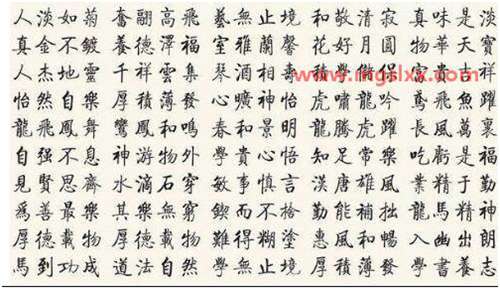 人淡如菊 奮翮高飛 藝無止境 和敬清寂 真味是淡
真金不鍍 養德澤福 室雅蘭馨 花好月圓 物華天寶
人杰地靈 千祥雲集 琴酒相 吉祥
www.mgslxx.com
怡然自樂 厚積薄發 心曠神怡 虎嘯龍吟 鳶飛魚躍
龍飛鳳舞 鸞鳳和鳴 春和景明 龍騰虎躍 長風萬裏
自强不息 神游物外 學貴心悟 知足常樂 吃虧是福
見賢思齊 水滴石穿 敏事慎言 漢唐雄風 業精于勤
爲善最樂 其樂無窮 鍥而不捨 勤能補拙 龍馬精神
厚德載物 厚德載物 難得糊塗 惠風和暢 入幽出朗
馬到功成 道法自然 學無止境 厚積薄發 學書養志